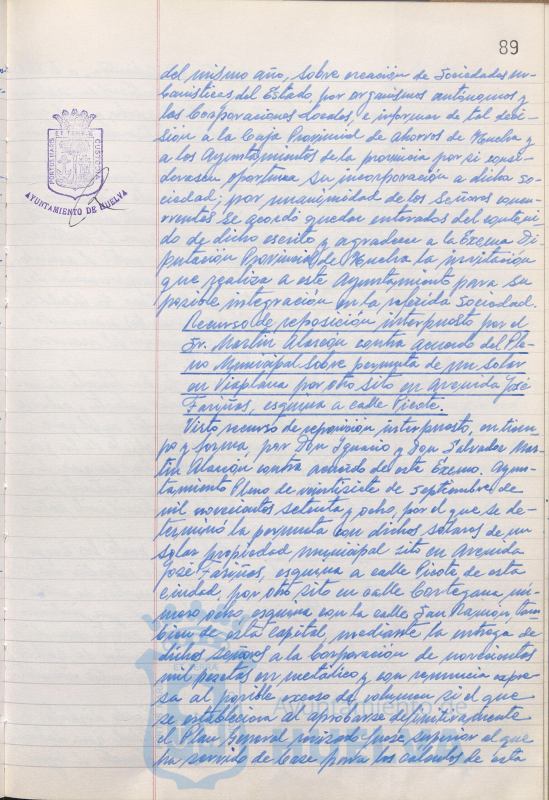 89
PORTUS MARIS ET TERRAE CUSTODIA
AYUNTAMIENTO DE HUELVA
del mismo año, sobre creación de Sociedades ur-
banísticas del Estado, por organismos autónomos y
las Corporaciones Locales, e informar de tal deci-
sión a la Caja Provincial de Ahorros de Huelva y
a los Ayuntamientos de la provincia por si consi-
derasen oportuna su incorporación a dicha so-
ciedad; por unanimidad de los Señores concu-
rrentes se acordó quedar enterados del conteni-
do de dicho escrito y agradecer a la Excma Di-
putación Provincial de Huelva la invitación
que realiza a este Ayuntamiento para su
posible integración en la referida Sociedad.
Recurso de reposición interpuesto por el
Sr. Martín Alarcón contra acuerdo del Ple-
no Municipal sobre permuta de un solar
en Viaplana por otro sito en Avenida José
Fariñas, esquina a calle Picote.
Visto recurso de reposición interpuesto, en tiem-
po y forma, por Don Ignacio y Don Salvador Mar-
tín Alarcón contra acuerdo de este Excmo. Ayun-
tamiento Pleno de veintisiete de Septiembre de
mil novecientos setenta y ocho, por el que se de-
terminó la permuta con dichos señores de un
solar propiedad municipal sito en Avenida
José Fariñas, esquina a calle Picote de esta
ciudad, por otro sito en calle Cortegana nú-
mero ocho, esquina con la calle San Ramón, tam-
bien de esta Capital, mediante la entrega de
dichos señores a la Corporación de novecientas
mil pesetas en metálico y con renuncia expre-
sa al posible exceso de volumen si el que
se estableciera al aprobarse definitivamente
el Plan General revisado fuese superior al que
ha servido de base para los cálculos de esta
Ayuntamiento de
HUELVA